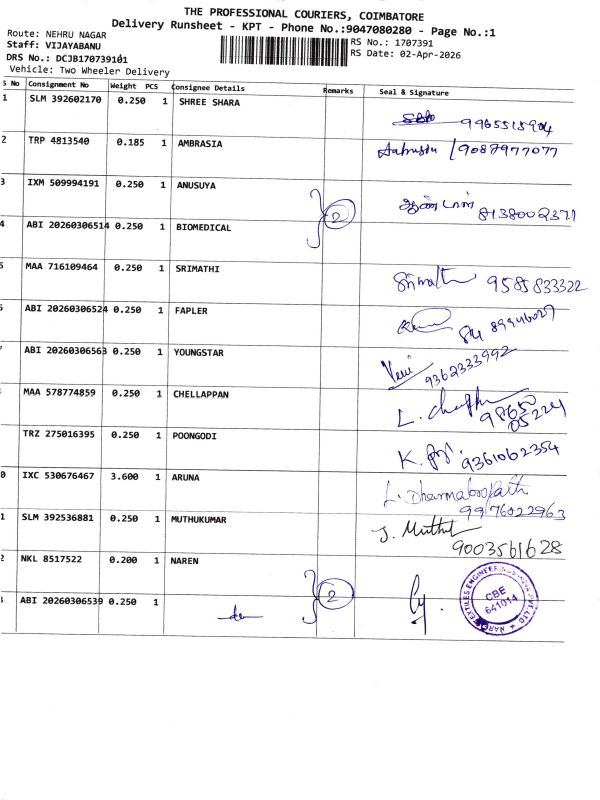 THE PROFESSIONAL COURIERS, COIMBATORE
Delivery Runsheet - KPT - Phone No.:9047080280 - Page No.:1
Route: NEHRU NAGAR
Staff: VIJAYABANU
DRS No.: DCJB170739101
Vehicle: Two Wheeler Delivery
RS No.: 1707391
RS Date: 02-Apr-2026
S No Consignment No Weight PCS Consignee Details Remarks Seal & Signature
1 SLM 392602170 0.250 1 SHREE SHARA
9965515904
2 TRP 4813540 0.185 1 AMBRASIA
9087977077
3 IXM 509994191 0.250 1 ANUSUYA
2 ஆண்டாள் 8138002371
4 ABI 20260306514 0.250 1 BIOMEDICAL
5 MAA 716109464 0.250 1 SRIMATHI
Srimathi 9585833322
6 ABI 20260306524 0.250 1 FAPLER
84 89946027
ABI 20260306563 0.250 1 YOUNGSTAR
9362333992
MAA 578774859 0.250 1 CHELLAPPAN
98650
05224
TRZ 275016395 0.250 1 POONGODI
9361062354
0 IXC 530676467 3.600 1 ARUNA
L. Dharmaboopathi
9976022963
1 SLM 392536881 0.250 1 MUTHUKUMAR
9003561628
2 NKL 8517522 0.200 1 NAREN
2
ABI 20260306539 0.250 1
CBE
641014